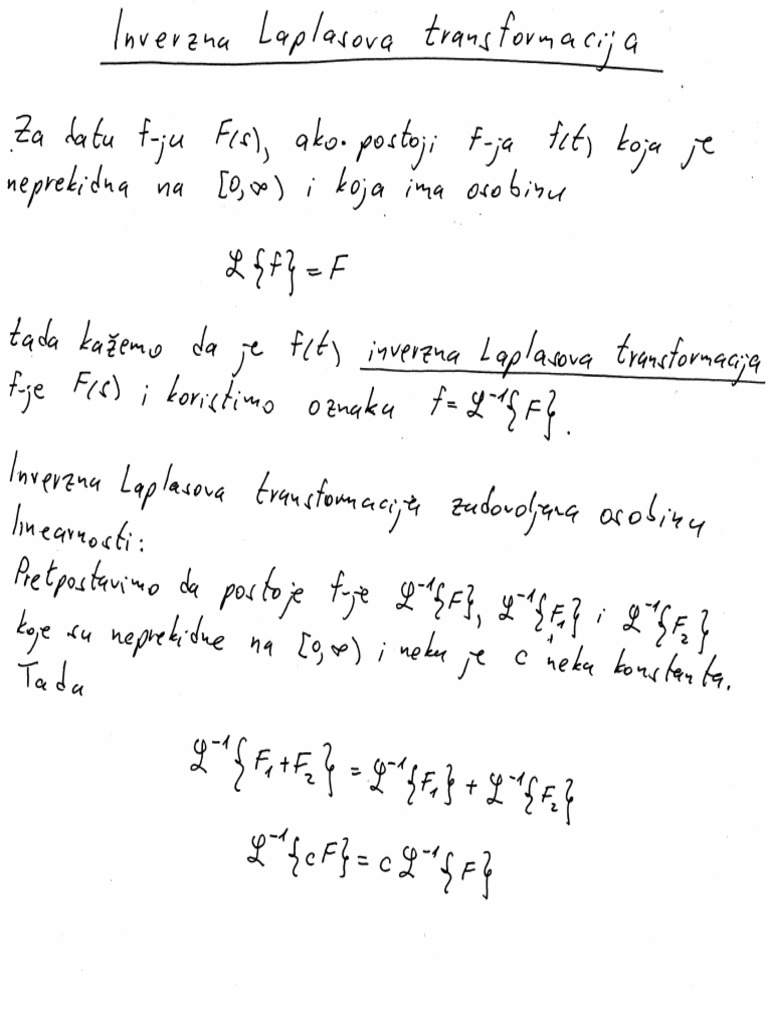 Inverzna Laplasova transformacija
Za datu f-ju F(s), ako postoji f-ja f(t) koja je
neprekidna na [0,∞) i koja ima osobinu
ℒ{f} = F
tada kažemo da je f(t) inverzna Laplasova transformacija
f-je F(s) i koristimo oznaku f = ℒ⁻¹{F}.
Inverzna Laplasova transformacija zadovoljava osobinu
linearnosti:
Pretpostavimo da postoje f-je ℒ⁻¹{F}, ℒ⁻¹{F₁} i ℒ⁻¹{F₂}
koje su neprekidne na [0,∞) i neka je c neka konstanta.
Tada
ℒ⁻¹{F₁+F₂} = ℒ⁻¹{F₁} + ℒ⁻¹{F₂}
ℒ⁻¹{cF} = cℒ⁻¹{F}